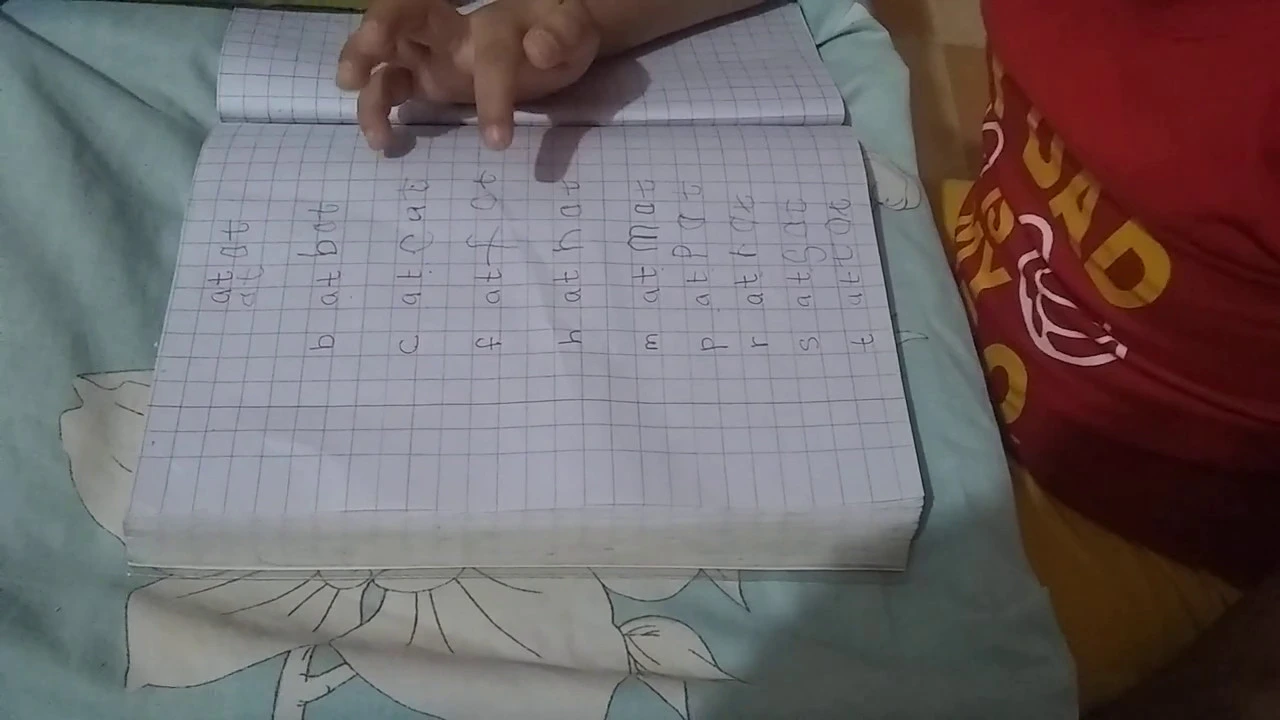 at at
at at
b at bat
c at Cat
f at f at
h at h at
m at Mat
p at Pat
r at rat
s at Sat
t at t at
SAD